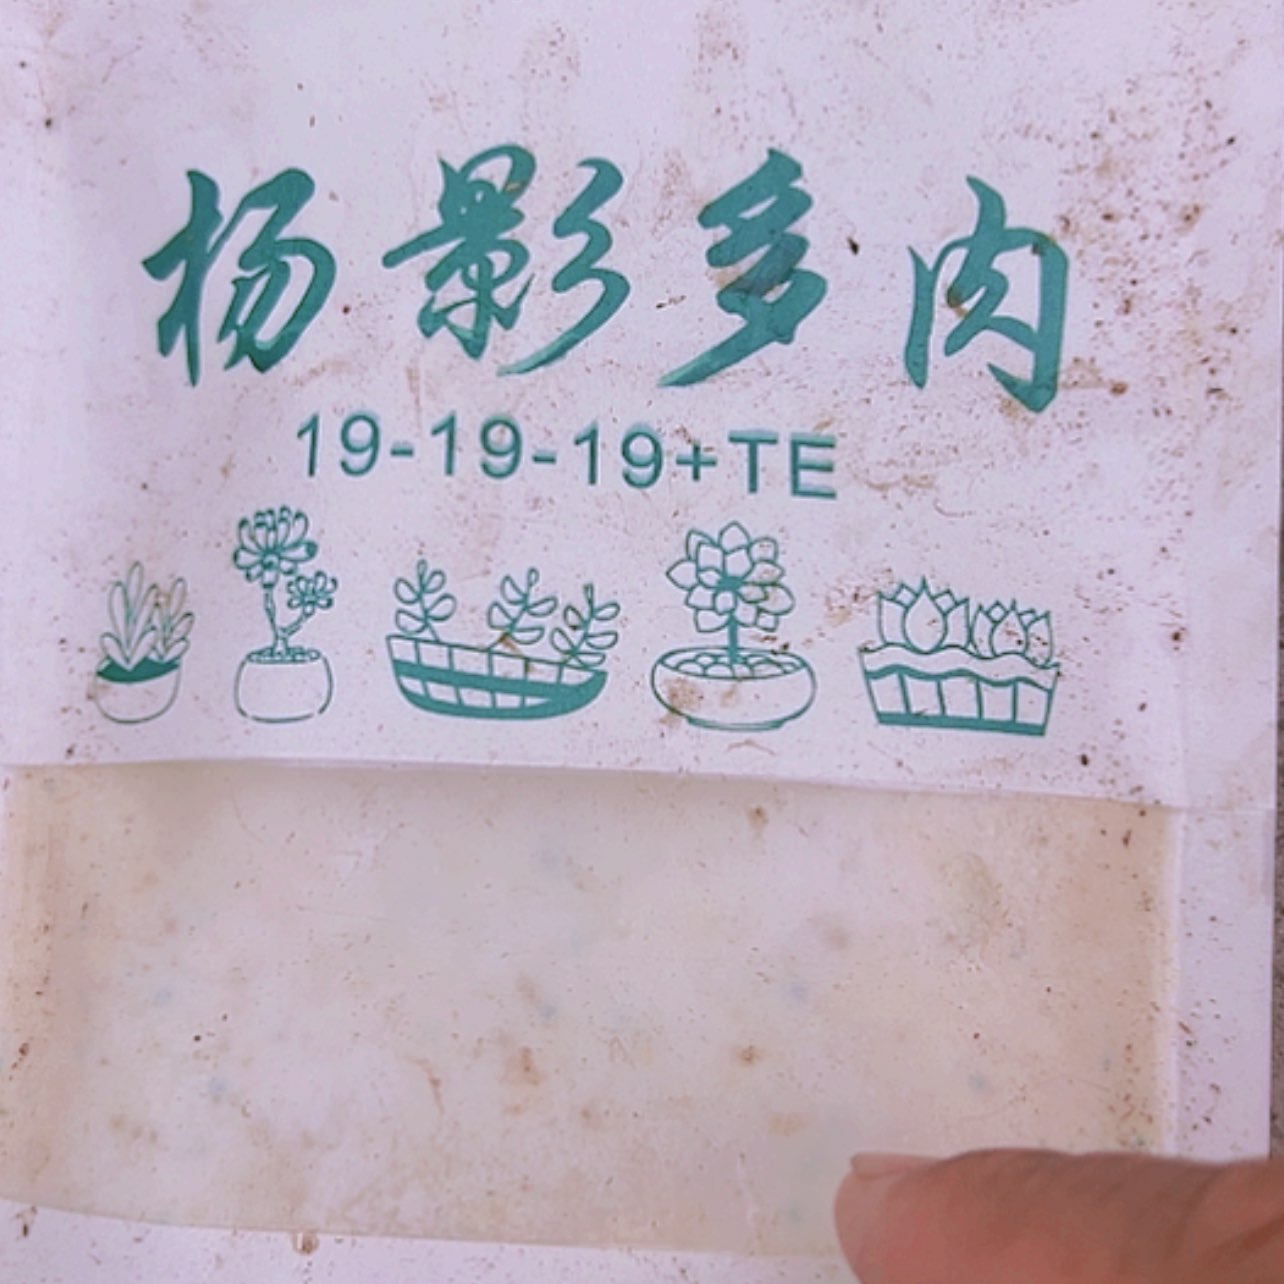 杨影多肉
19-19-19+TE